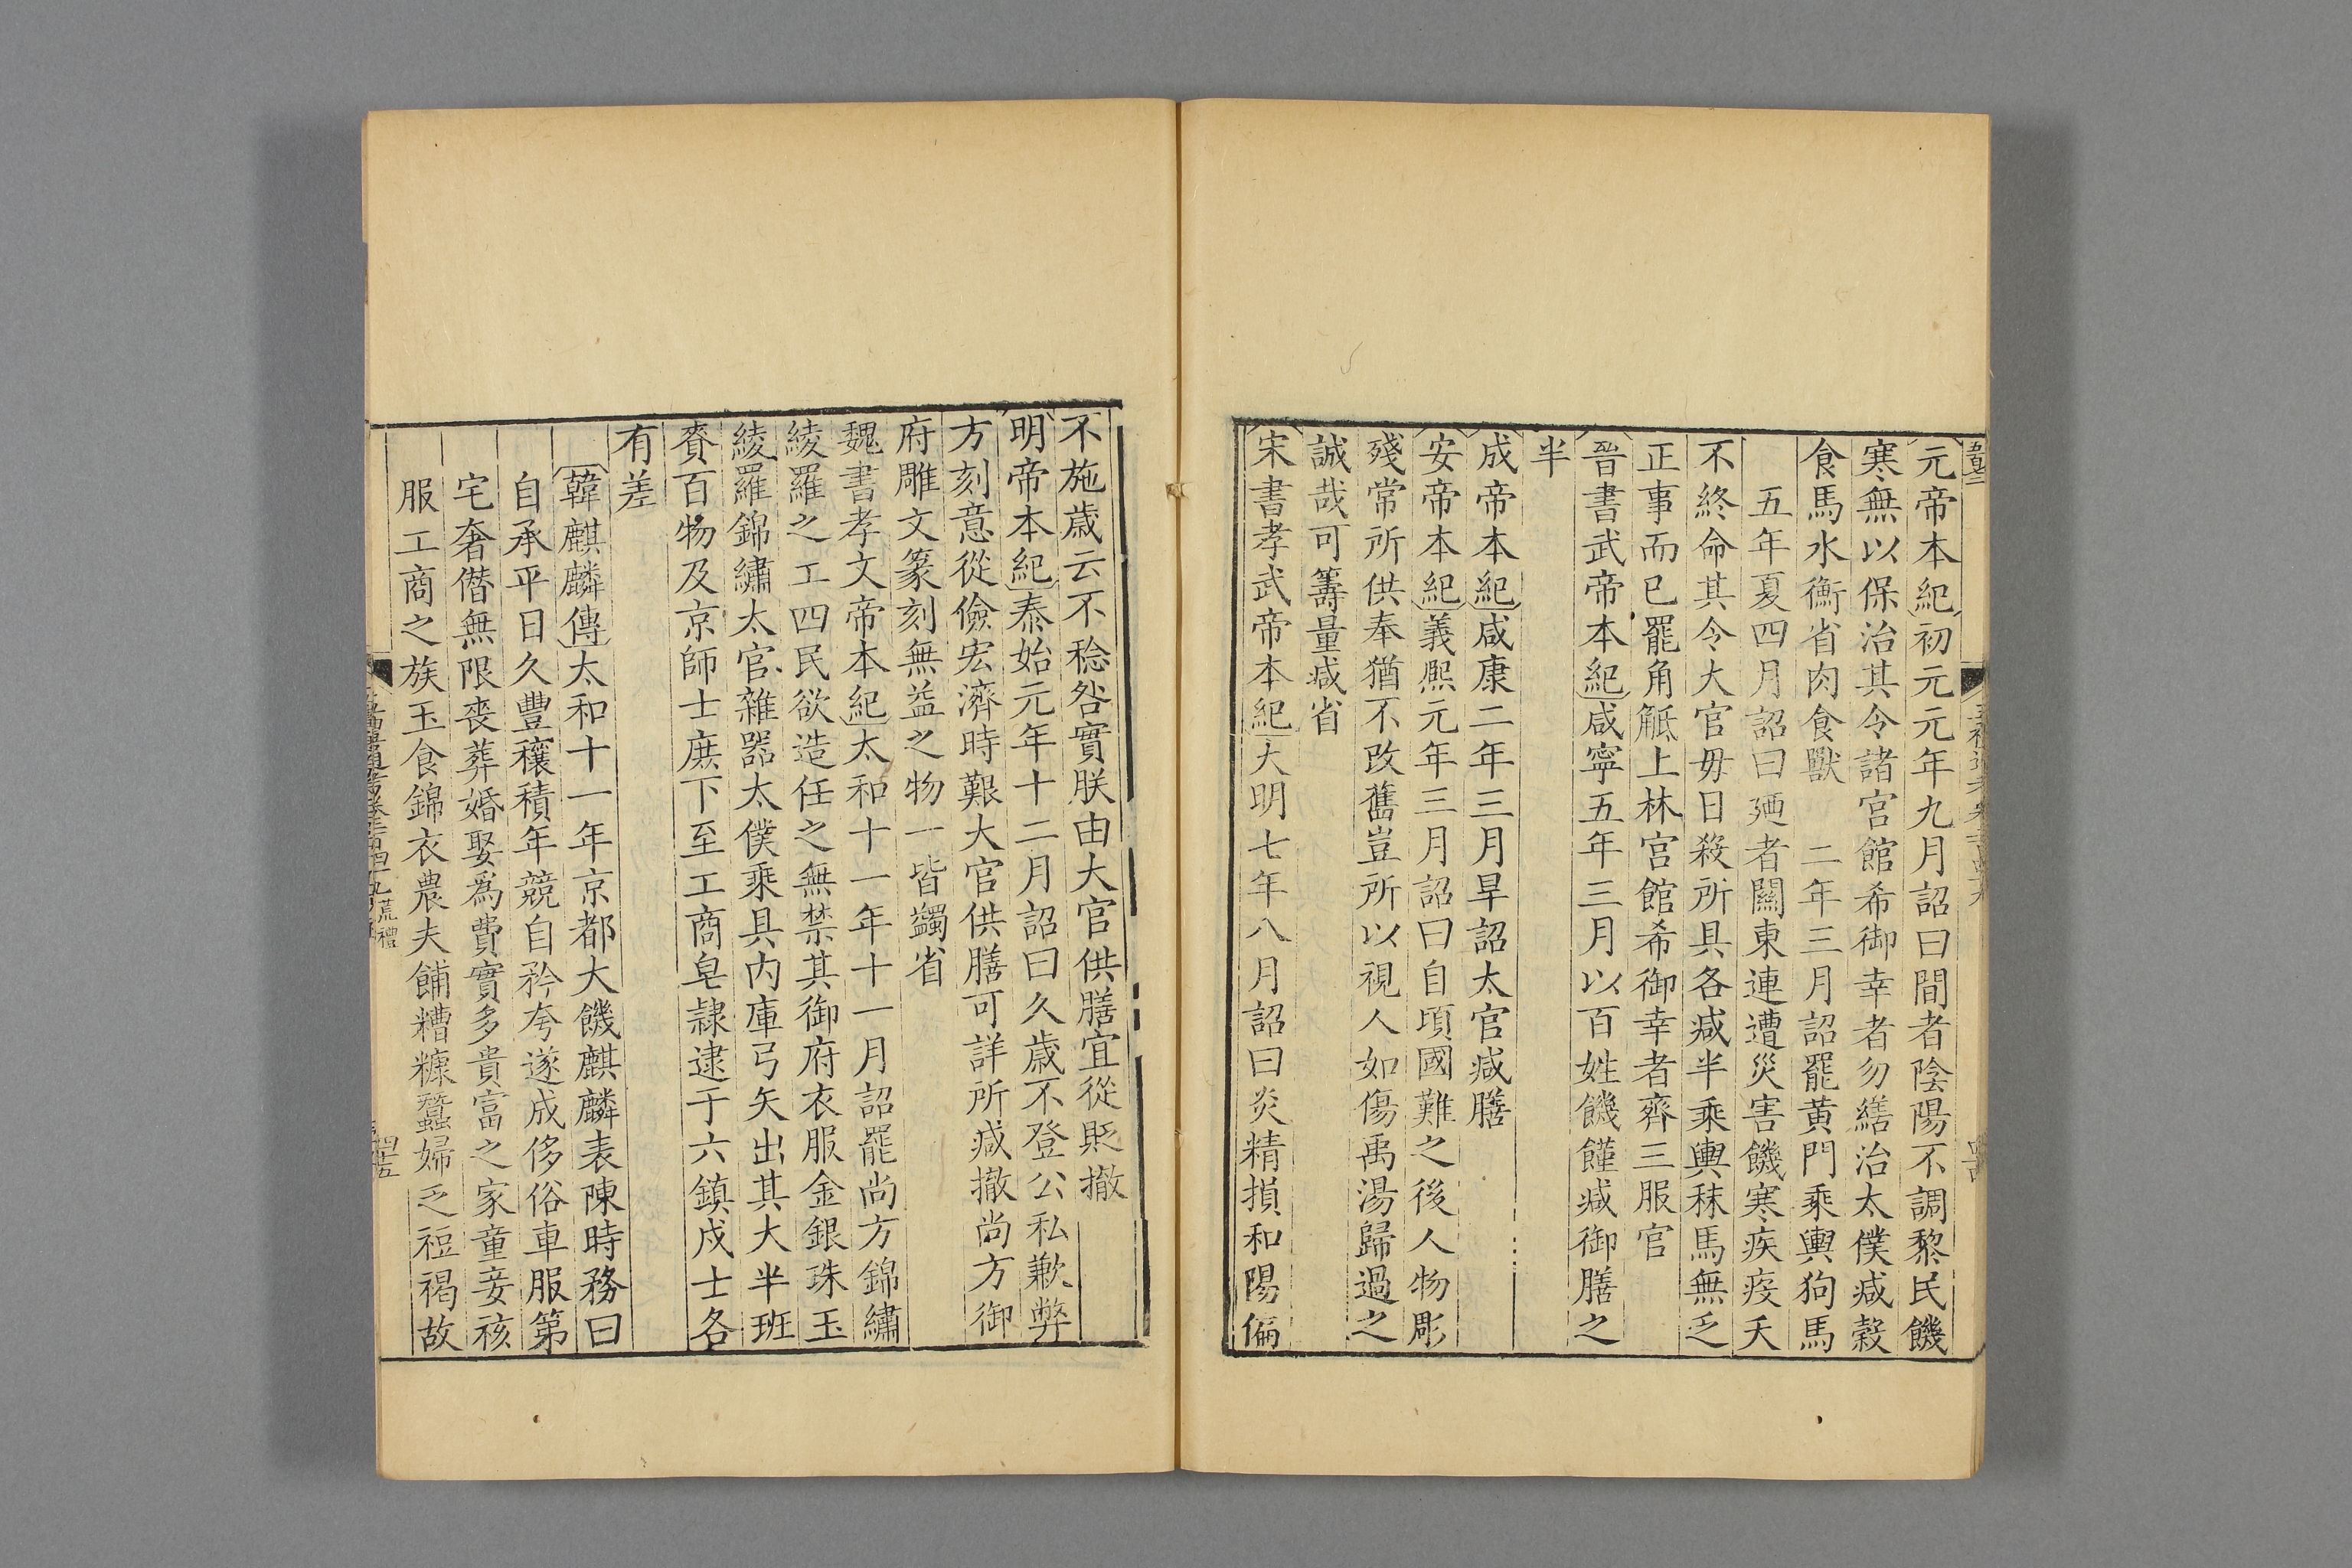 元帝本紀初元元年九月詔曰間者陰陽不調黎民饑
寒無以保治其令諸宮館希御幸者勿繕治太僕減穀
食馬水衡省肉食獸　二年三月詔罷黃門乘輿狗馬
五年夏四月詔曰廼者關東連遭災害饑寒疾疫夭
不終命其令大官毋日殺所具各減半乘輿秣馬無乏
正事而已罷角觝上林宮館希御幸者齊三服官
晉書武帝本紀咸寧五年三月以百姓饑饉減御膳之
半
成帝本紀咸康二年三月旱詔太官減膳
安帝本紀義熙元年三月詔曰自頃國難之後人物彫
殘常所供奉猶不改舊豈所以視人如傷禹湯歸過之
誠哉可籌量減省
宋書孝武帝本紀大明七年八月詔曰炎精損和陽偏
不施歲云不稔咎實朕由大官供膳宜從貶撤
明帝本紀泰始元年十二月詔曰久歲不登公私歉弊
方刻意從儉宏濟時艱大官供膳可詳所減撤尚方御
府雕文篆刻無益之物一皆蠲省
魏書孝文帝本紀太和十一年十一月詔罷尚方錦繡
綾羅之工四民欲造任之無禁其御府衣服金銀珠玉
綾羅錦繡太官雜器太僕乘具內庫弓矢出其大半班
賚百物及京師士庶下至工商皂隸逮于六鎮戍士各
有差
韓麒麟傳太和十一年京都大饑麒麟表陳時務曰
自承平日久豐穰積年競自矜夸遂成侈俗車服第
宅奢僭無限喪葬婚娶爲費實多貴富之家童妾袨
服工商之族玉食錦衣農夫餔糟糠蠶婦乏裋褐故
荒禮